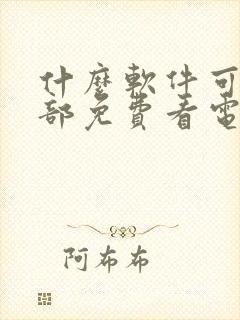 什麼軟件可
部免費看電
阿布布